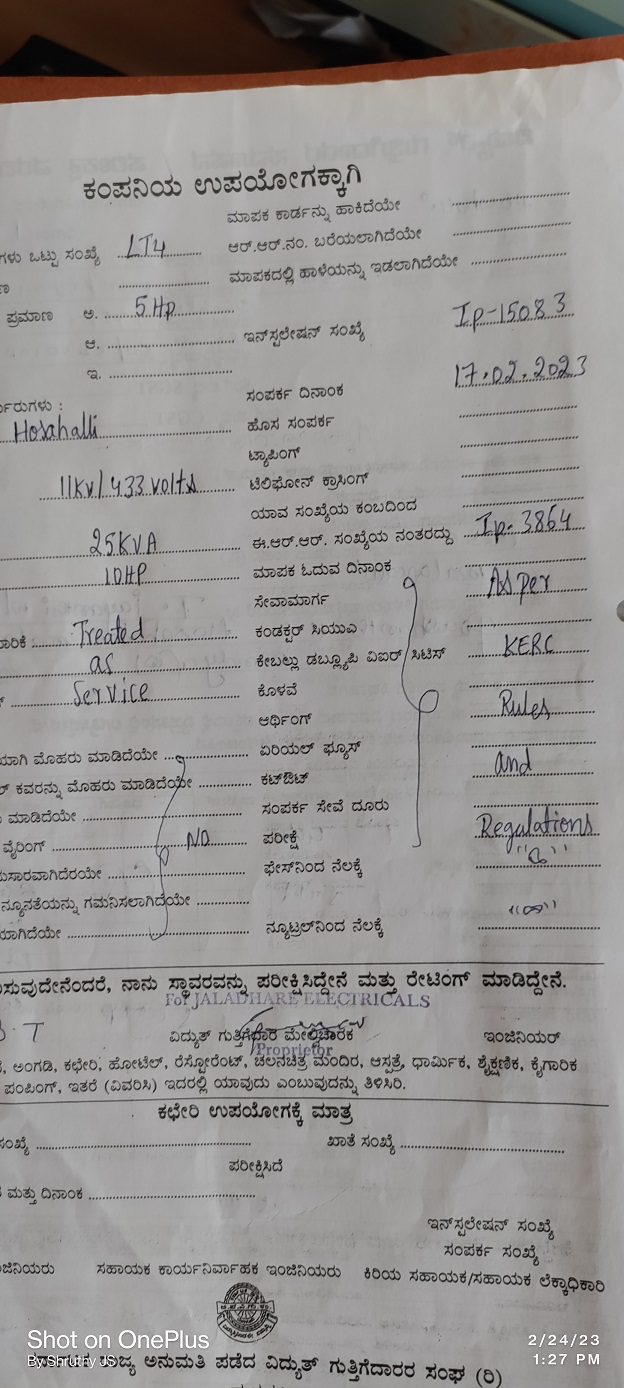 ಕಂಪನಿಯ ಉಪಯೋಗಕ್ಕಾಗಿ
ಮಾಪಕ ಕಾರ್ಡನ್ನು ಹಾಕಿದೆಯೇ
ಗಳು ಒಟ್ಟು ಸಂಖ್ಯೆ LT4 ಆರ್.ಆರ್.ನಂ. ಬರೆಯಲಾಗಿದೆಯೇ
ಮಾಪಕದಲ್ಲಿ ಹಾಳೆಯನ್ನು ಇಡಲಾಗಿದೆಯೇ
ಪ್ರಮಾಣ ಅ. 5Hp
ಆ. ಇನ್‌ಸ್ಟಲೇಷನ್ ಸಂಖ್ಯೆ Ip-15083
ಇ.
ಸಂಪರ್ಕ ದಿನಾಂಕ 17.02.2023
Hosahalli ಹೊಸ ಸಂಪರ್ಕ
ಟ್ಯಾಪಿಂಗ್
11kv/433 volts ಟೆಲಿಫೋನ್ ಕ್ರಾಸಿಂಗ್
ಯಾವ ಸಂಖ್ಯೆಯ ಕಂಬದಿಂದ
25KVA ಈ.ಆರ್.ಆರ್. ಸಂಖ್ಯೆಯ ನಂತರದ್ದು Ip-3864
10HP ಮಾಪಕ ಓದುವ ದಿನಾಂಕ
ಸೇವಾಮಾರ್ಗ As per
Treated ಕಂಡಕ್ಟರ್ ಸಿಯುವಿ
as ಕೇಬಲ್ಲು ಡಬ್ಲ್ಯೂಪಿ ವಿಐಆರ್ ಸಿಟಿಸ್ KERC
Service ಕೊಳವೆ
ಆರ್ಥಿಂಗ್ Rules
ಯಾಗಿ ಮೊಹರು ಮಾಡಿದೆಯೇ ಏರಿಯಲ್ ಫ್ಯೂಸ್
ಕವರನ್ನು ಮೊಹರು ಮಾಡಿದೆಯೇ ಕಟ್‌ಔಟ್ and
ಮಾಡಿದೆಯೇ ಸಂಪರ್ಕ ಸೇವೆ ದೂರು
ವೈರಿಂಗ್ NO ಪರೀಕ್ಷೆ Regulations
ಸಾರವಾಗಿದೆರಯೇ ಫೇಸ್‌ನಿಂದ ನೆಲಕ್ಕೆ
ನ್ಯೂನತೆಯನ್ನು ಗಮನಿಸಲಾಗಿದೆಯೇ
ಯಾಗಿದೆಯೇ ನ್ಯೂಟ್ರಲ್‌ನಿಂದ ನೆಲಕ್ಕೆ "∞"
ಸುವುದೇನೆಂದರೆ, ನಾನು ಸ್ಥಾವರವನ್ನು ಪರೀಕ್ಷಿಸಿದ್ದೇನೆ ಮತ್ತು ರೇಟಿಂಗ್ ಮಾಡಿದ್ದೇನೆ.
For JALADHARE ELECTRICALS
ವಿದ್ಯುತ್ ಗುತ್ತಿಗೆದಾರ ಮೇಲ್ವಿಚಾರಕ ಇಂಜಿನಿಯರ್
Proprietor
ಅಂಗಡಿ, ಕಛೇರಿ, ಹೋಟೆಲ್, ರೆಸ್ಟೋರೆಂಟ್, ಚಲನಚಿತ್ರ ಮಂದಿರ, ಆಸ್ಪತ್ರೆ, ಧಾರ್ಮಿಕ, ಶೈಕ್ಷಣಿಕ, ಕೈಗಾರಿಕ
ಪಂಪಿಂಗ್, ಇತರೆ (ವಿವರಿಸಿ) ಇದರಲ್ಲಿ ಯಾವುದು ಎಂಬುವುದನ್ನು ತಿಳಿಸಿರಿ.
ಕಛೇರಿ ಉಪಯೋಗಕ್ಕೆ ಮಾತ್ರ
ಸಂಖ್ಯೆ ಖಾತೆ ಸಂಖ್ಯೆ
ಪರೀಕ್ಷಿಸಿದೆ
ಮತ್ತು ದಿನಾಂಕ
ಇನ್‌ಸ್ಟಲೇಷನ್ ಸಂಖ್ಯೆ
ಸಂಪರ್ಕ ಸಂಖ್ಯೆ
ಸಹಾಯಕ ಕಾರ್ಯನಿರ್ವಾಹಕ ಇಂಜಿನಿಯರು ಕಿರಿಯ ಸಹಾಯಕ/ಸಹಾಯಕ ಲೆಕ್ಕಾಧಿಕಾರಿ
Shot on OnePlus
By Shruthy JS
2/24/23
1:27 PM
ರಾಜ್ಯ ಅನುಮತಿ ಪಡೆದ ವಿದ್ಯುತ್ ಗುತ್ತಿಗೆದಾರರ ಸಂಘ (ರಿ)